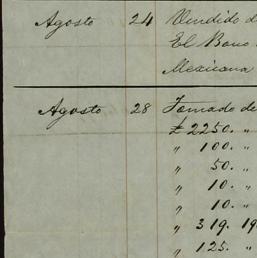 Agosto 24 Vendido d
El Bono
Mexicana
Agosto 28 Tomado de
£ 2250. "
" 100. "
" 50. "
" 10. "
" 10. "
" 319. 19
" 125. "